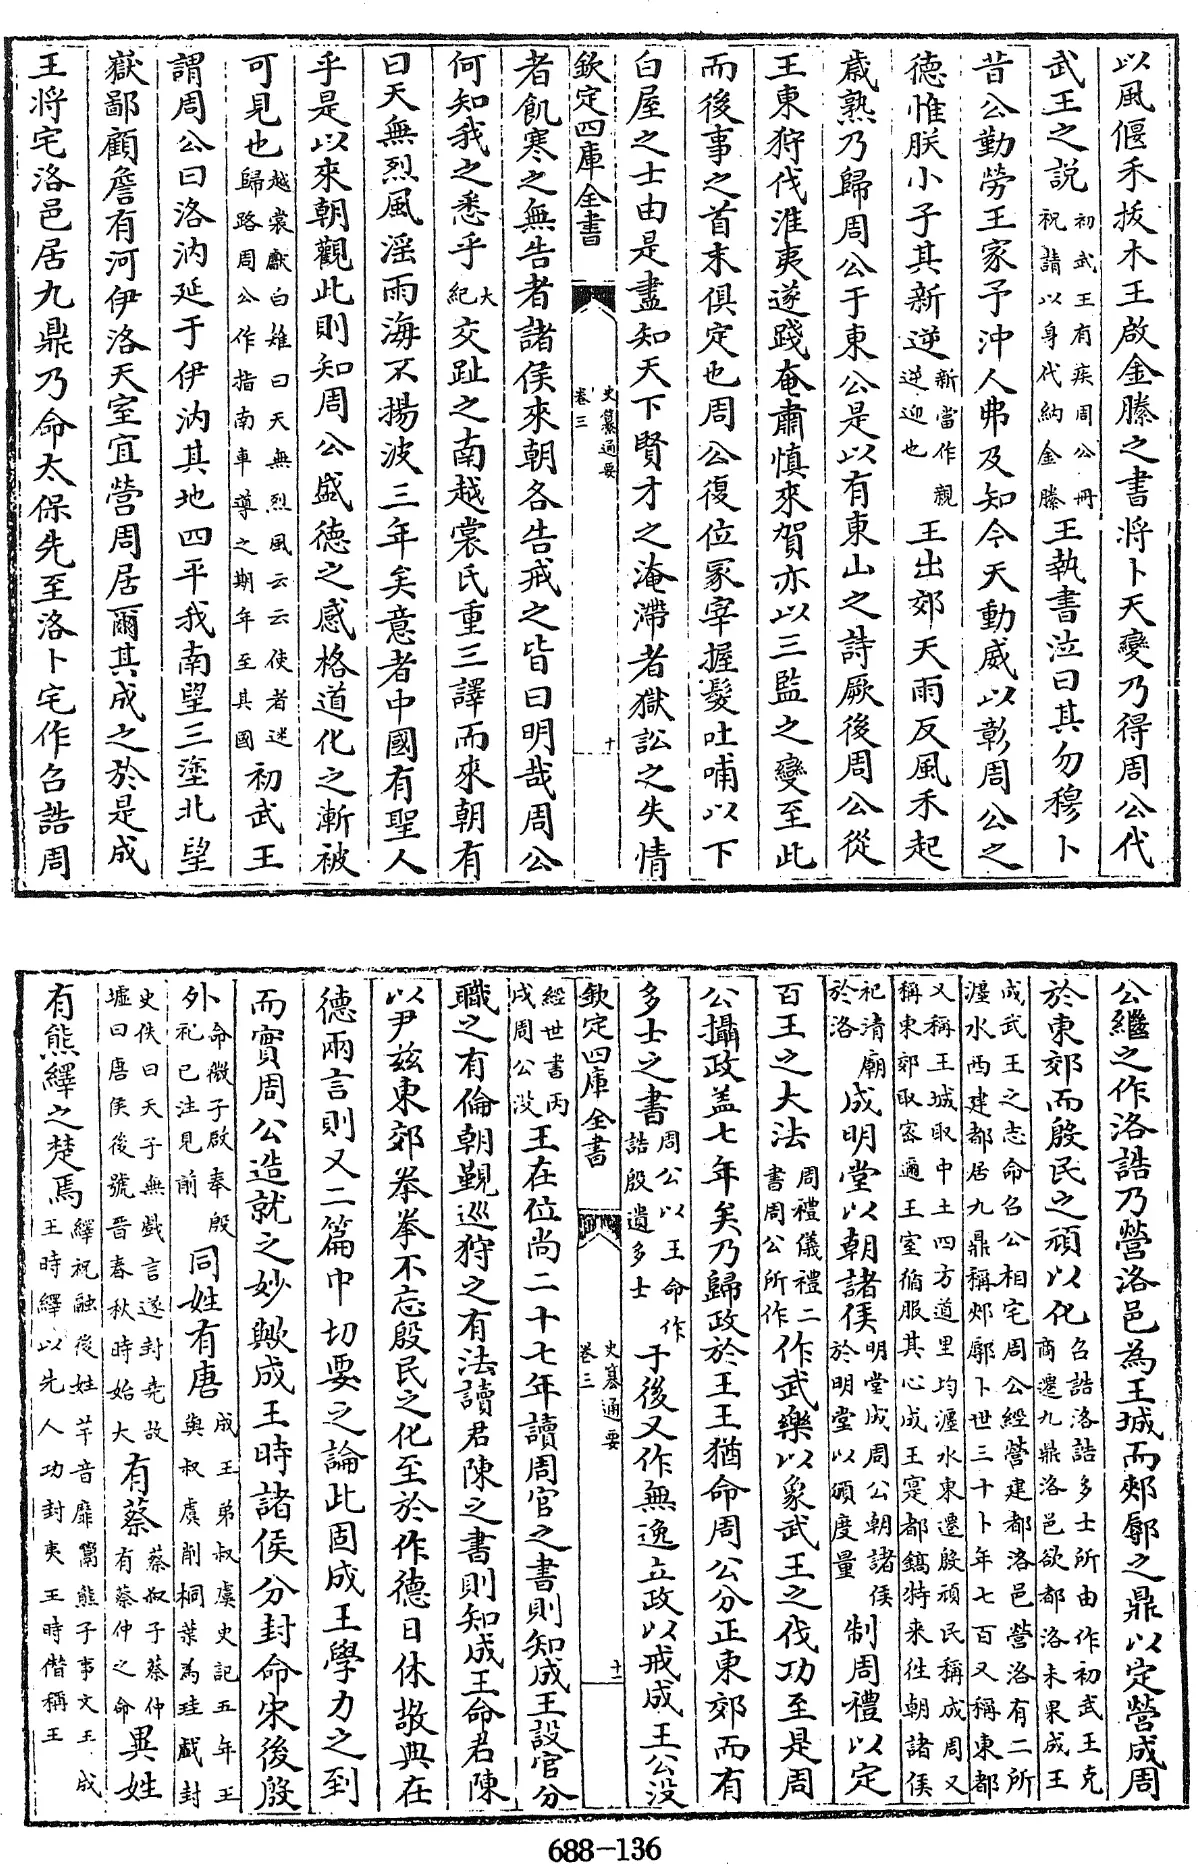 以風偃禾拔木王啟金縢之書將卜天變乃得周公代
武王之説初武王有疾周公冊祝請以身代納金縢王執書泣曰其勿穆卜
昔公勤勞王家予沖人弗及知今天動威以彰周公之
德惟朕小子其新逆新當作親逆迎也王出郊天雨反風禾起
歳熟乃歸周公于東公是以有東山之詩厥後周公從
王東狩伐淮夷遂踐奄肅慎來賀亦以三監之變至此
而後事之首末俱定也周公復位冢宰握髮吐哺以下
白屋之士由是盡知天下賢才之淹滯者獄訟之失情
欽定四庫全書 史纂通要卷三 十
者飢寒之無告者諸侯來朝各告戒之皆曰明哉周公
何知我之悉乎大紀交趾之南越裳氏重三譯而來朝有
曰天無烈風淫雨海不揚波三年矣意者中國有聖人
乎是以來朝觀此則知周公盛徳之感格道化之漸被
可見也越裳獻白雉曰天無烈風云云使者迷歸路周公作指南車導之期年至其國初武王
謂周公曰洛汭延于伊汭其地四平我南望三塗北望
嶽鄙顧詹有河伊洛天室宜營周居爾其成之於是成
王將宅洛邑居九鼎乃命太保先至洛卜宅作召誥周
公繼之作洛誥乃營洛邑為王城而郟鄏之鼎以定營成周
於東郊而殷民之頑以化召誥洛誥多士所由作初武王克商遷九鼎洛邑欲都洛未果成王
成武王之志命召公相宅周公經營建都洛邑營洛有二所瀍水西建都居九鼎稱郟鄏卜世三十卜年七百又稱東都
又稱王城取中土四方道里均瀍水東遷殷頑民稱成周又稱東郊取密邇王室備服其心成王寔都鎬特来徃朝諸侯
祀清廟於洛成明堂以朝諸侯明堂成周公朝諸侯於明堂以頒度量制周禮以定
百王之大法周禮儀禮二書周公所作作武樂以象武王之伐功至是周
公攝政盖七年矣乃歸政於王王猶命周公分正東郊而有
多士之書周公以王命作誥殷遺多士于後又作無逸立政以戒成王公没
欽定四庫全書 史纂通要卷三 十一
經世書丙戌周公没王在位尚二十七年讀周官之書則知成王設官分
職之有倫朝覲巡狩之有法讀君陳之書則知成王命君陳
以尹兹東郊拳拳不忘殷民之化至於作德日休敬典在
德兩言則又二篇中切要之論此固成王學力之到
而實周公造就之妙歟成王時諸侯分封命宋後殷
外命微子啟奉殷祀已注見前同姓有唐成王弟叔虞史記五年王與叔虞削桐葉為珪戲封
史佚曰天子無戲言遂封堯故墟曰唐侯後號晋春秋時始大有蔡蔡叔子蔡仲有蔡仲之命異姓
有熊繹之楚焉繹祝融後姓芊音靡鬻熊子事文王成王時繹以先人功封夷王時僭稱王
688-136